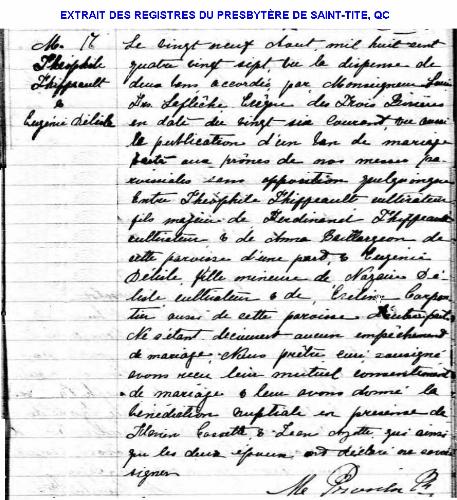 EXTRAIT DES REGISTRES DU PRESBYTÈRE DE SAINT-TITE, QC
M. 17
Théophile
Thiffeault
&
Eugénie Délisle
Le vingt neuf Aout, mil huit cent
quatre vingt sept, vu la dispense de
deux bans accordée par Monseigneur Louis
Frs Laflèche Evêque des Trois Rivières
en date du vingt six courant, vu aussi
la publication d'un ban de mariage
faite aux prônes de nos messes pa-
roissiales sans opposition quelquonque
Entre Théophile Thiffeault cultivateur
fils majeur de Ferdinand Thiffeault
cultivateur & de Anna Baillargeon de
cette paroisse d'une part, & Eugénie
Délisle fille mineure de Nazaire Dé-
lisle cultivateur & de Exeline Carpen-
tier aussi de cette paroisse d'autre part.
Ne s'étant découvert aucun empêchement
de mariage Nous prêtre curé soussigné
avons reçu leur mutuel consentement
de mariage & leur avons donné la
bénédiction nuptiale en présence de
Cossette & Jean qui ainsi
que les deux époux ont déclaré ne savoir
signer
Ptre